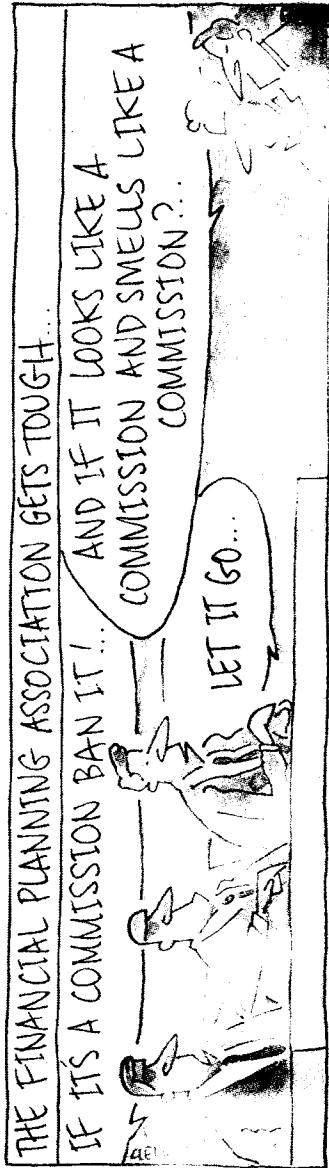 THE FINANCIAL PLANNING ASSOCIATION GETS TOUGH...
IF IT'S A COMMISSION BAN IT!...
AND IF IT LOOKS LIKE A
COMMISSION AND SMELLS LIKE A
COMMISSION?...
LET IT GO...